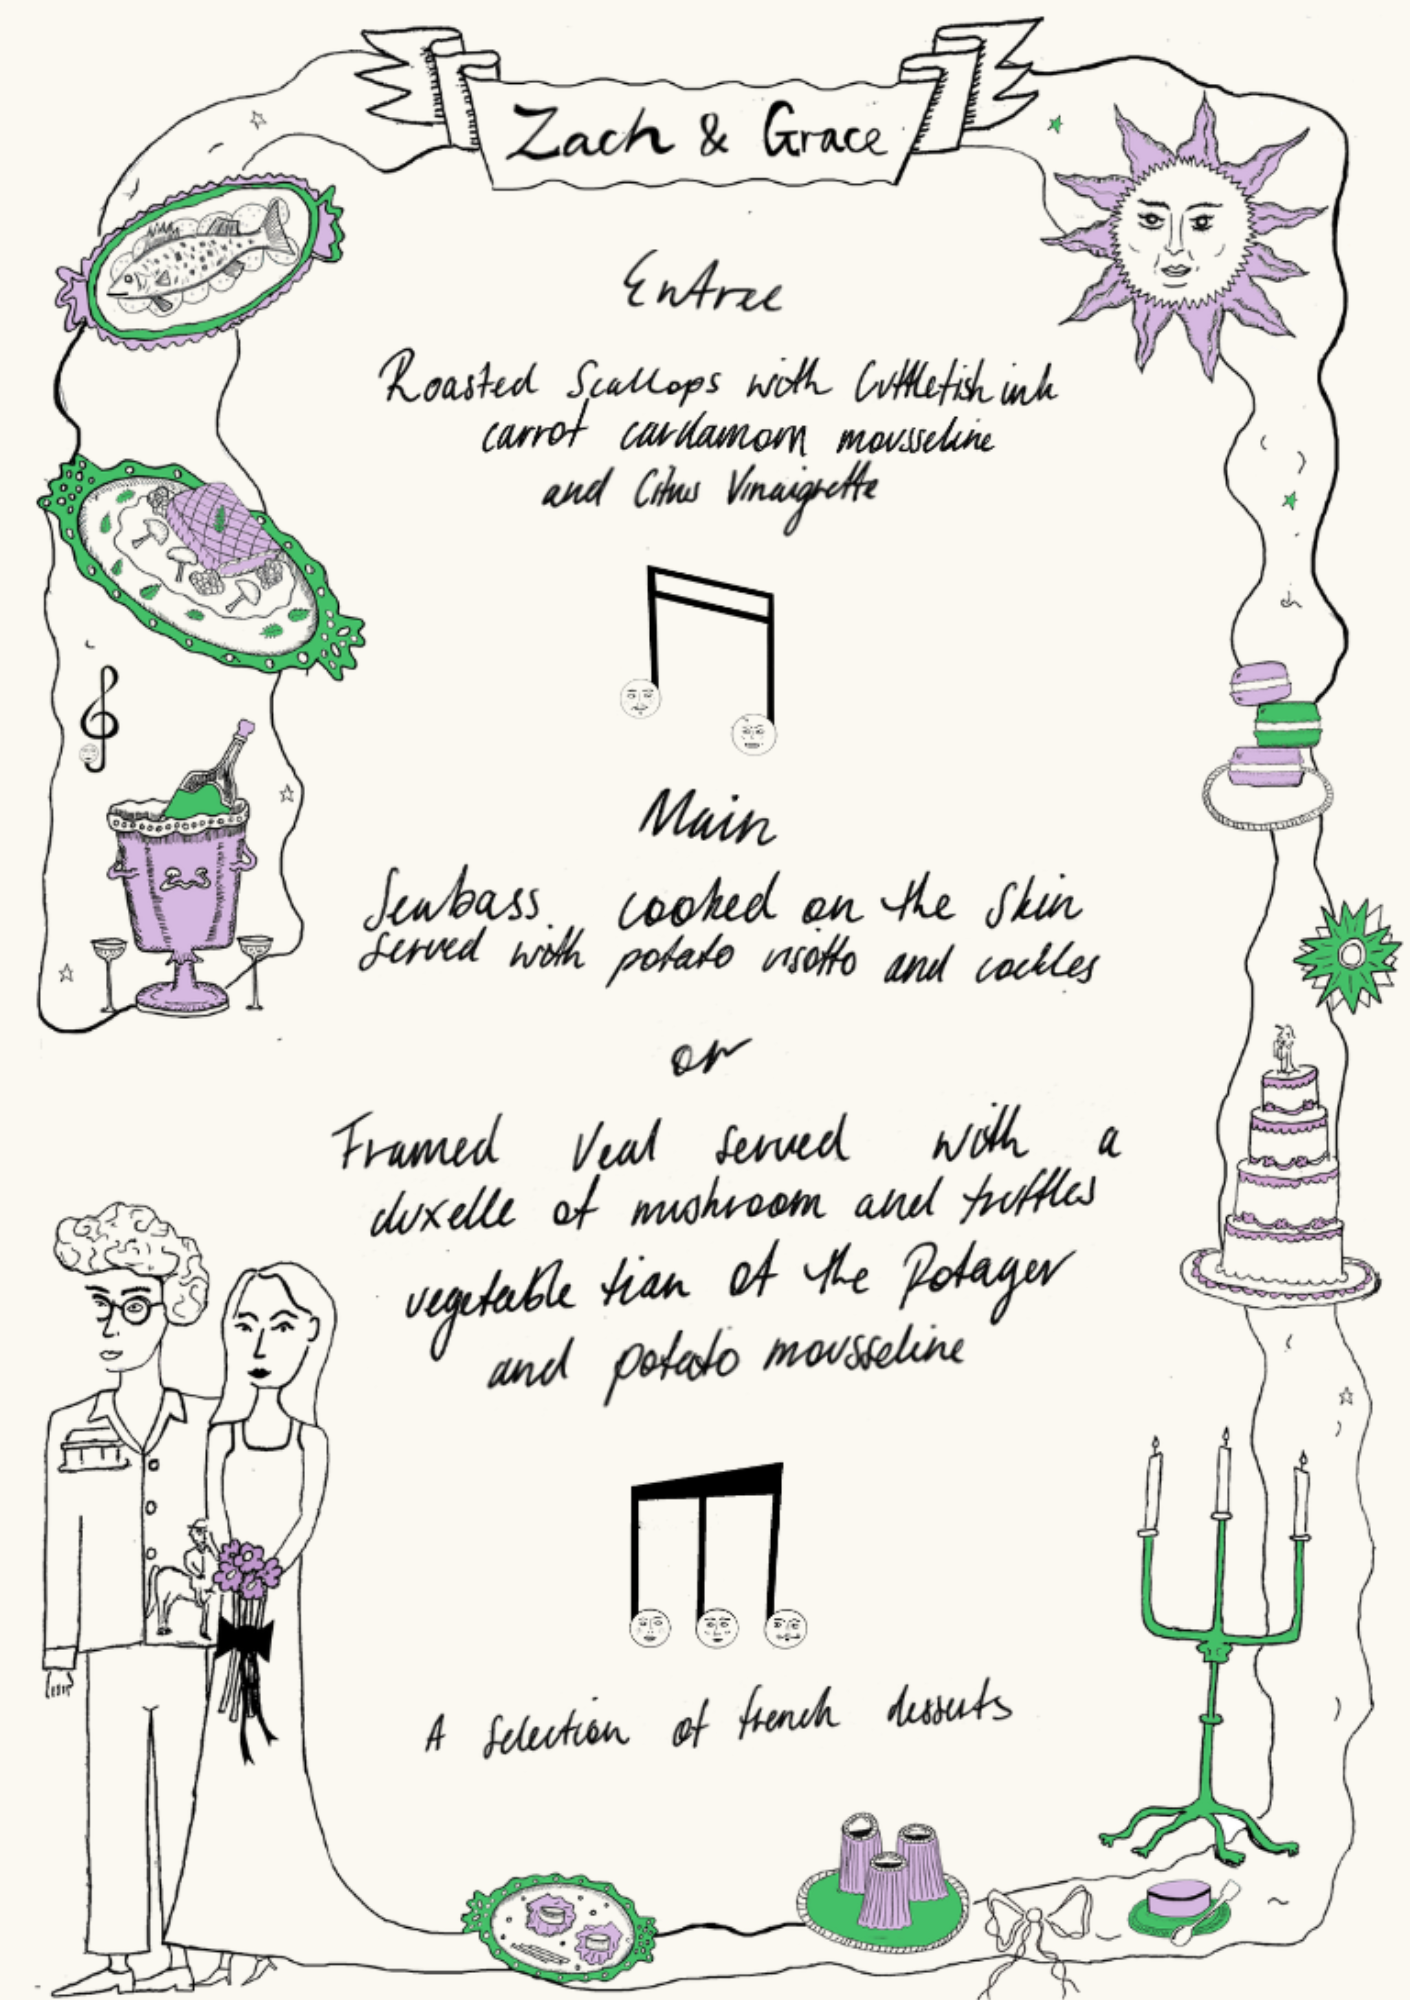 Zach & Grace
Entree
Roasted Scallops with Cuttlefish ink
carrot cardamom mousseline
and Citrus Vinaigrette
Main
Seabass cooked on the Skin
served with potato risotto and cockles
or
Framed Veal served with a
duxelle of mushroom and truffles
vegetable tian of the Potager
and potato mousseline
A Selection of french desserts